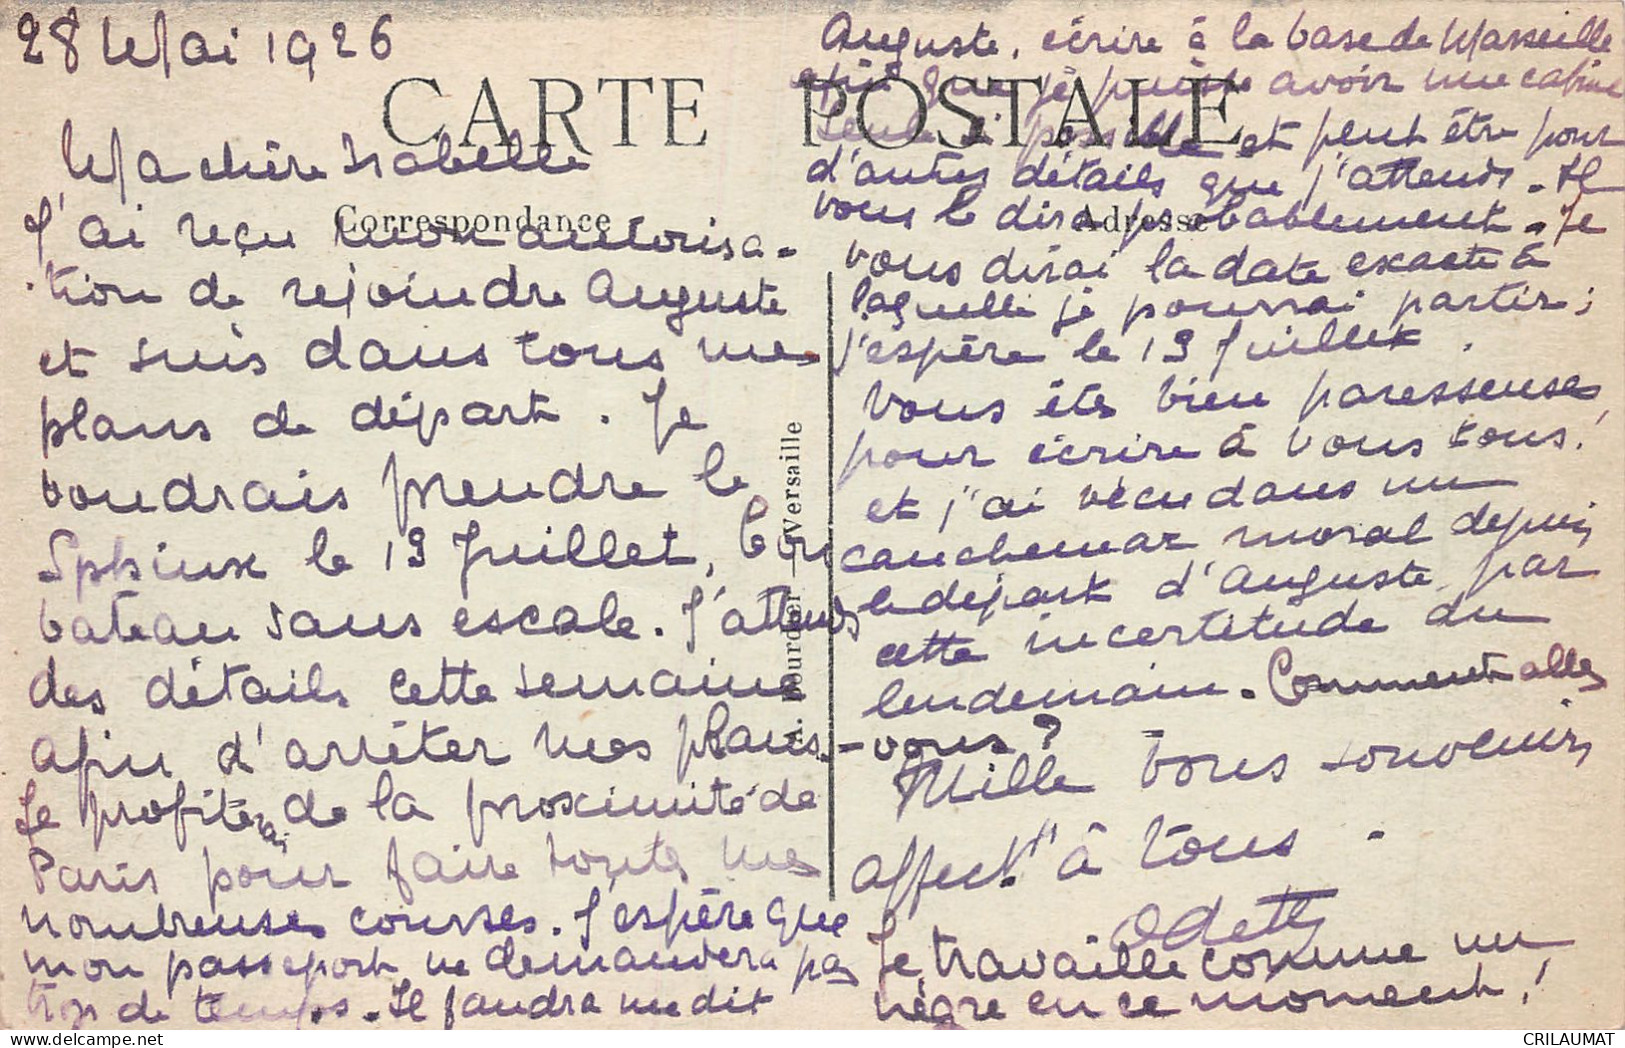 28 Mai 1926
CARTE POSTALE
Correspondance
Adresse
Ma chère Isabelle
J'ai reçu mon autorisa-
tion de rejoindre Auguste
et suis dans tous mes
plans de départ. Je
voudrais prendre le
Sphinx le 19 Juillet, bon
bateau sans escale. J'attends
des détails cette semaine
afin d'arrêter mes plans.
Je profiterai de la proximité de
Paris pour faire toutes mes
nombreuses courses. J'espère que
mon passeport ne demandera pas
trop de temps. Il faudra me dit
Auguste, écrire à la base de Marseille
afin que je puisse avoir une cabine
seule si possible et peut être pour
d'autres détails que j'attends. Il
vous le dira probablement. Je
vous dirai la date exacte à
laquelle je pourrai partir;
j'espère le 19 Juillet.
Vous êtes bien paresseuses
pour écrire à vous tous!
et j'ai vécu dans un
cauchemar moral depuis
le départ d'Auguste par
cette incertitude du
lendemain. Comment allez
-vous?
Mille bons souvenirs
affect. à tous.
Odette
Je travaille comme un
nègre en ce moment!
Bourdier — Versaille
CRILAUMAT